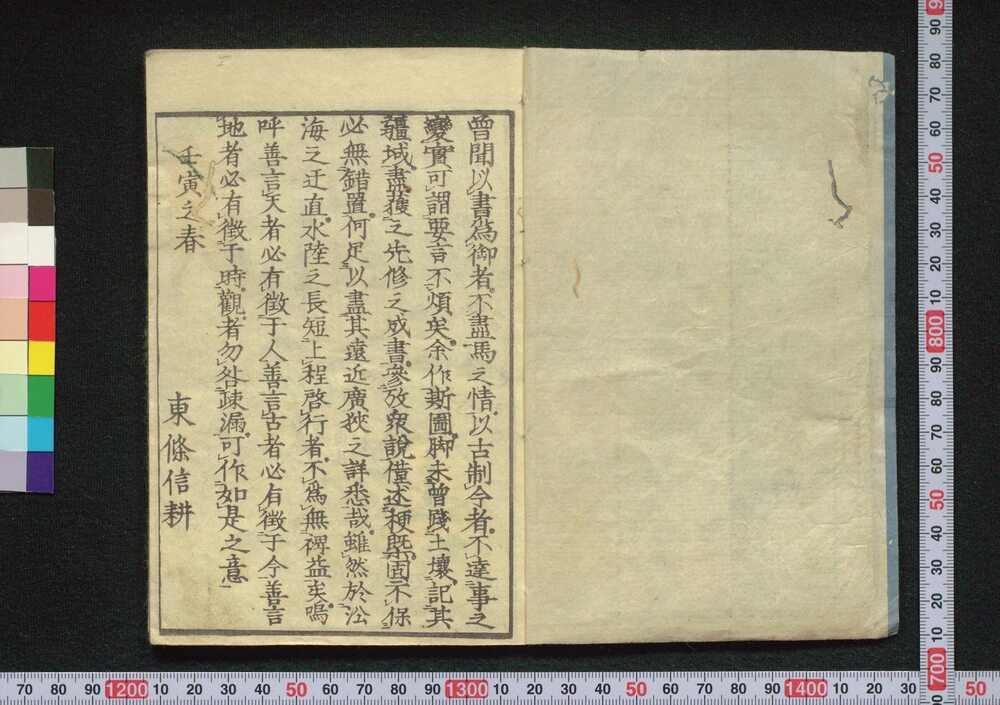 曾聞以書爲御者不盡馬之情以古制今者不達事之
變實可謂要言不煩矣余作斯圖脚未曾踐土壤記其
疆域盡蕿之先修之成書參攷衆說僅述梗槩固不保
必無錯置何足以盡其遠近廣狹之詳悉哉雖然於㳂
海之迂直水陸之長短上程啓行者不爲無裨益矣嗚
呼善言天者必有徵于人善言古者必有徵于今善言
地者必有徵于時觀者勿咎疎漏可作如是之意
壬寅之春
東條信耕
70 80 90 1200 10 20 30 40 50 60 70 80 90 1300 10 20 30 40 50 60 70 80 90 1400 10 20 30 50
90 80 70 60 50 40 30 20 10 800 90 80 70 60 50 40 30 20 10 700